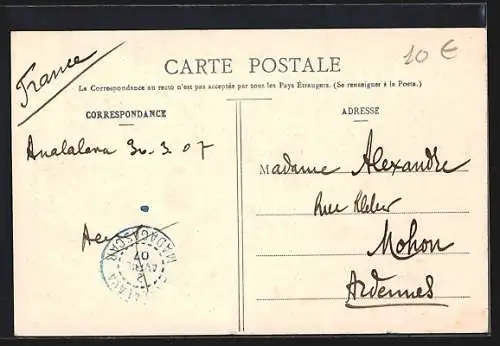 France
10 €
CARTE POSTALE
La Correspondance au recto n'est pas acceptée par tous les Pays Étrangers. (Se renseigner à la Poste.)
CORRESPONDANCE
ADRESSE
Analalava 30.3.07
Madame Alexandre
Rue Kleber
Mohon
Ardennes
MADAGASCAR
2
AVRIL
07